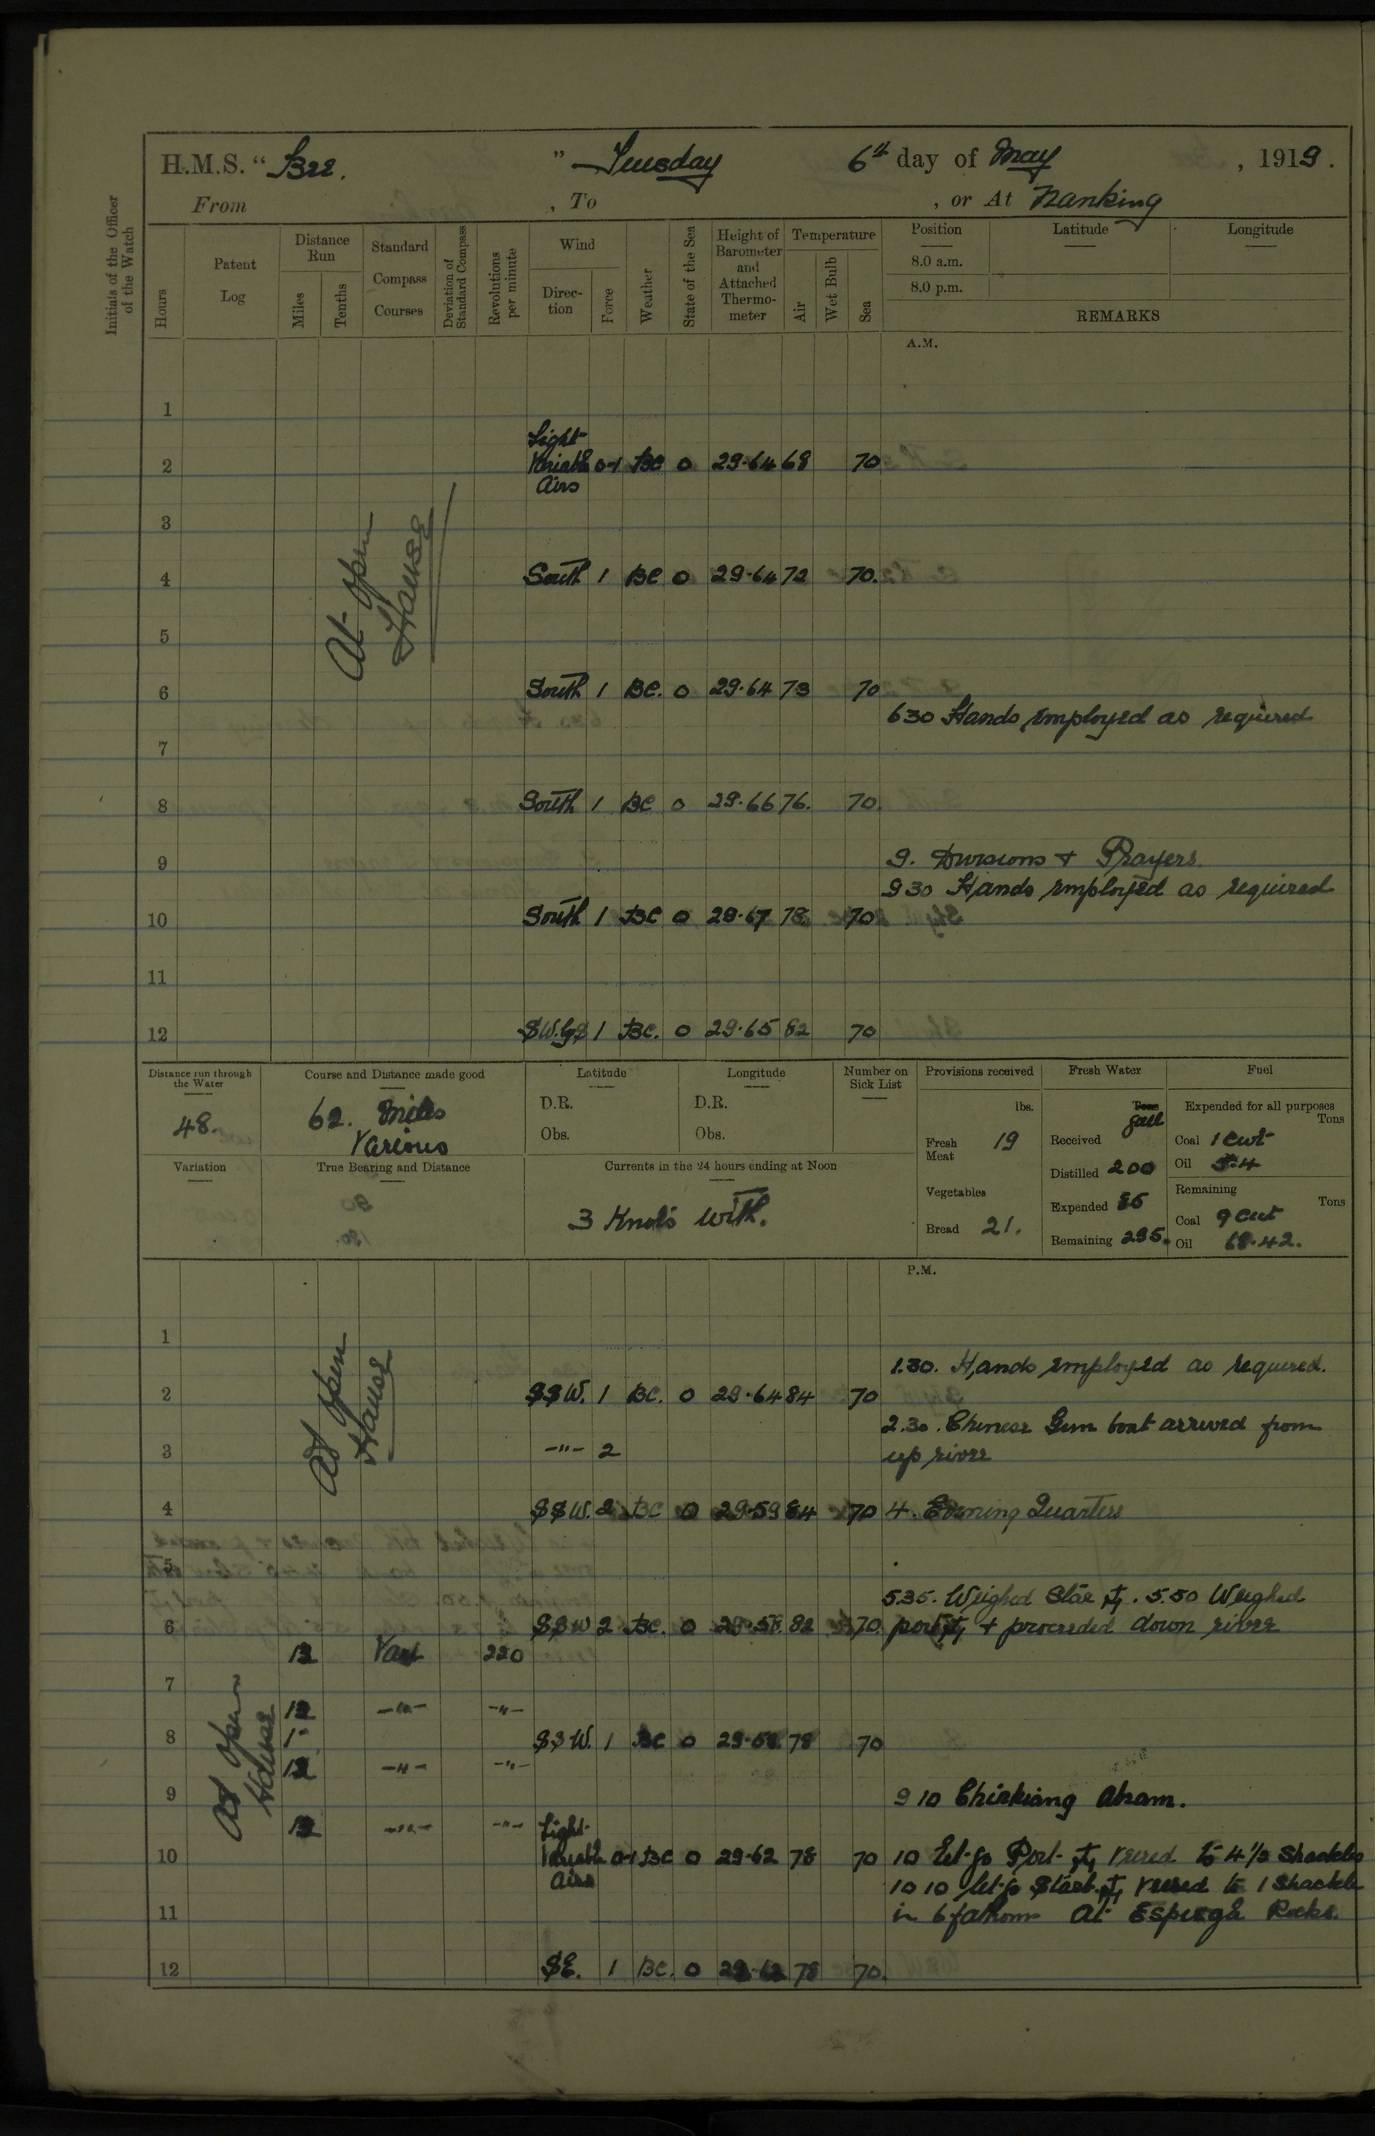 H.M.S. " Bee. " Tuesday 6th day of May , 1919.
From , To , or At Nanking
Initials of the Officer of the Watch
Hours
Patent Log
Distance Run
Miles
Tenths
Standard Compass Courses
Deviation of Standard Compass
Revolutions per minute
Wind
Direction
Force
Weather
State of the Sea
Height of Barometer and Attached Thermometer
Temperature
Air
Wet Bulb
Sea
Position Latitude Longitude
8.0 a.m.
8.0 p.m.
REMARKS
A.M.
At open Hause
1
2 Light Variable Airs 0-1 BC 0 29.64 68 70
3
4 South 1 BC 0 29.64 72 70.
5
6 South 1 BC. 0 29.64 73 70
630 Hands employed as required
7
8 South 1 BC 0 29.66 76. 70.
9 9. Divisions + Prayers.
930 Hands employed as required
10 South 1 BC 0 29.67 78 70
11
12 SW.byS 1 BC. 0 29.65 82 70
Distance run through the Water
48.
Course and Distance made good
62. Miles
Various
Latitude
D.R.
Obs.
Longitude
D.R.
Obs.
Number on Sick List
Provisions received
lbs.
Fresh Meat 19
Vegetables
Bread 21.
Fresh Water
Tons
gall
Received
Distilled 200
Expended 85
Remaining 295.
Fuel
Expended for all purposes
Tons
Coal 1 cwt
Oil 5.4
Remaining
Tons
Coal 9 cwt
Oil 68.42.
Variation
True Bearing and Distance
Currents in the 24 hours ending at Noon
3 Knots with.
P.M.
At open Hause
1
1.30. Hands employed as required.
2 SSW. 1 BC. 0 29.64 84 70
2.30. Chinese Gun boat arrived from
3 -"- 2 up river
4 SSW. 2 BC 0 29.59 84 70 4. Evening Quarters
5
5.35. Weighed Star . 5.50 Weighed
6 SSW 2 BC. 0 29.58. 82 70 port + proceeded down river
12 Var 220
7
12 -"- -"-
8 1 SSW. 1 BC 0 29.58. 78 70
12 -"- -"-
At open Hause
9 9 10 Chinkiang Abeam.
12 -"- -"-
10 Light Variable Airs 0-1 BC 0 29.62 78 70 10 Let go Port veered to 4 1/2 Shackles
10 10 let go Starb. veered to 1 Shackle
11 in 6 fathoms At Rocks.
12 SE. 1 BC. 0 29.62 78 70.